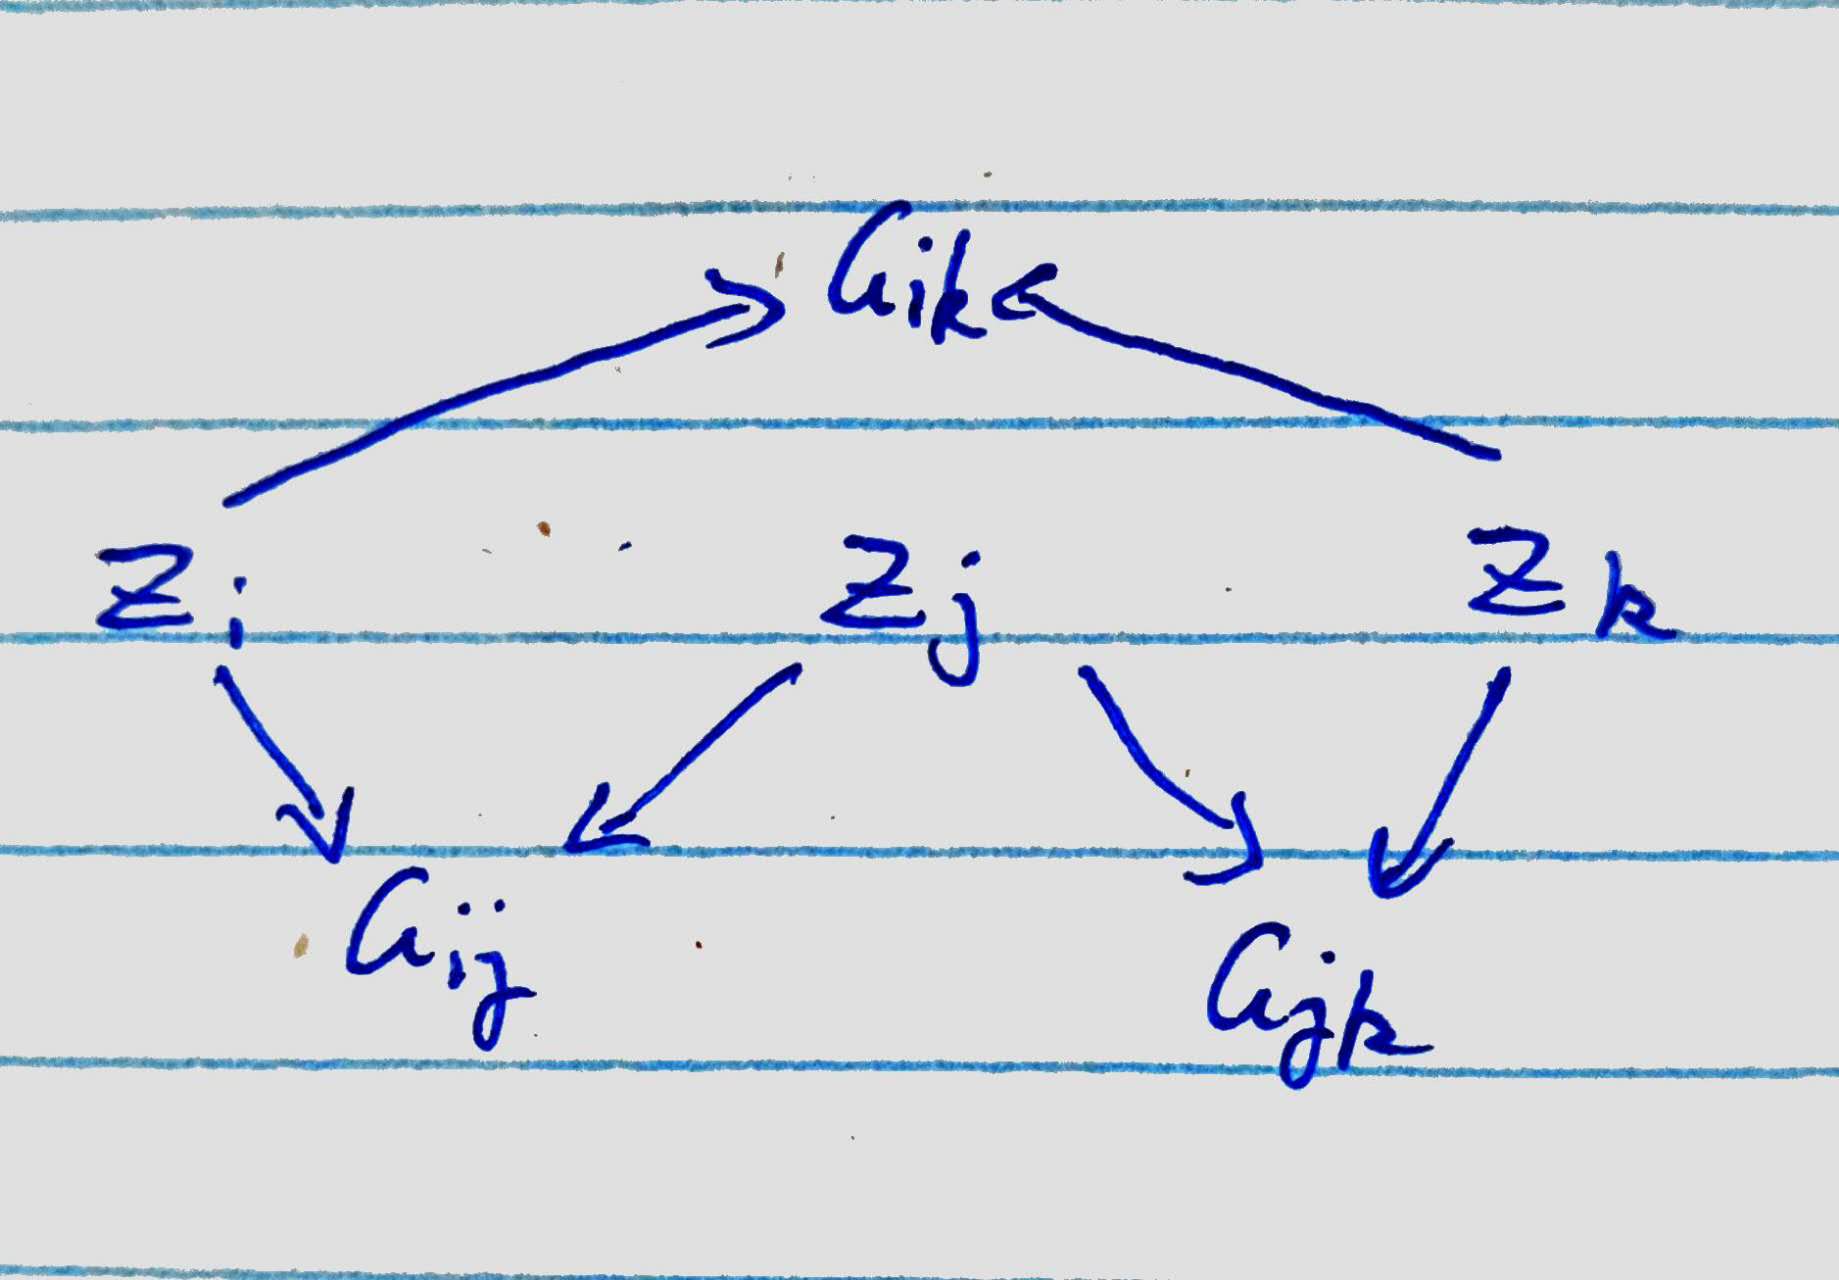 Gik
Zi Zj Zk
Gij
Gjk